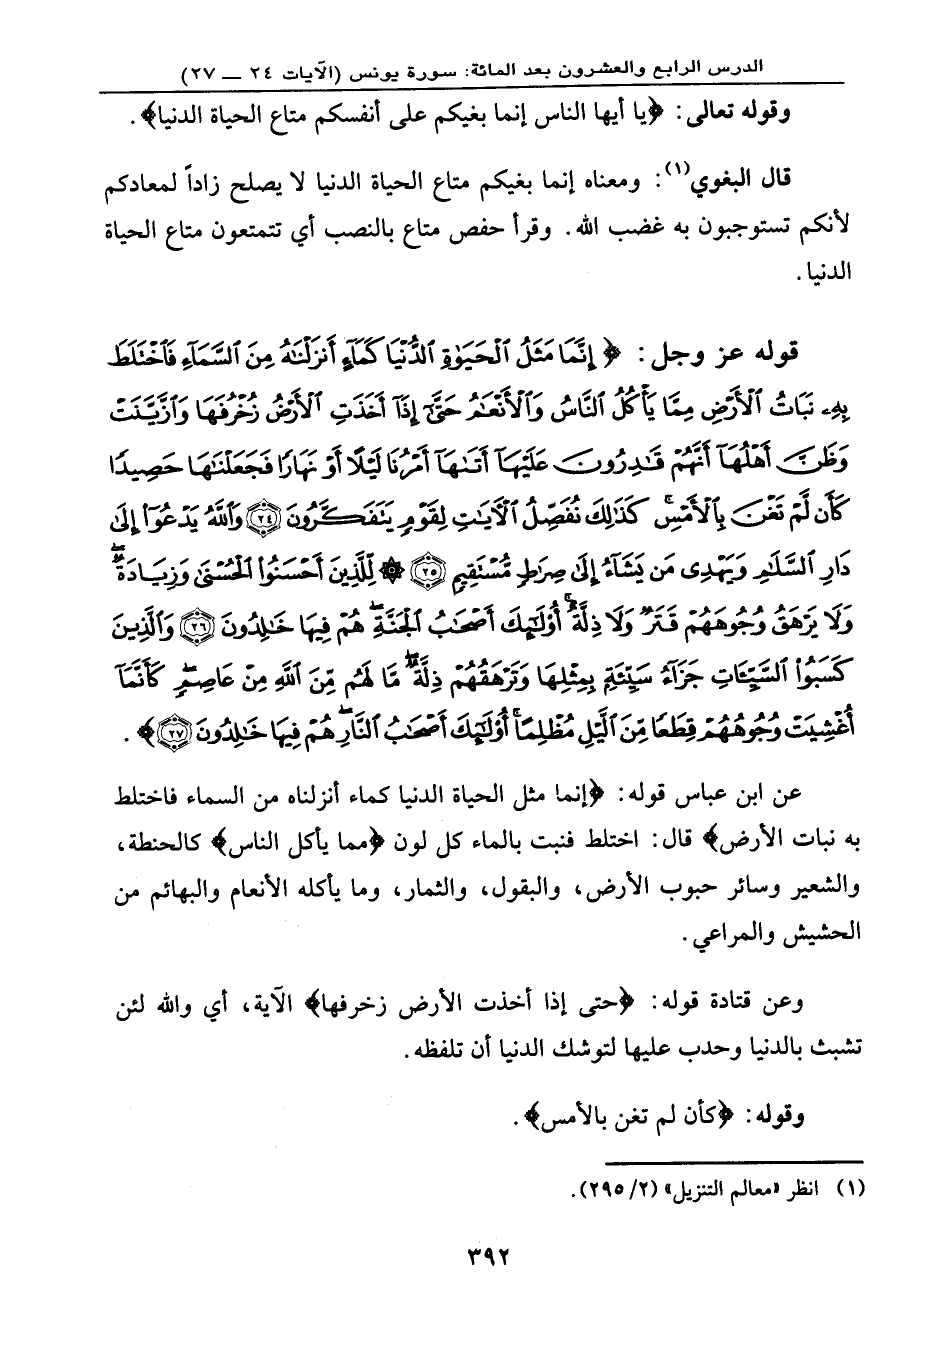 الدرس الرابع والعشرون بعد المائة: سورة يونس (الآيات ٢٤ ــ ٢٧)
وقوله تعالى: ﴿يا أيها الناس إنما بغيكم على أنفسكم متاع الحياة الدنيا﴾.
قال البغوي(١): ومعناه إنما بغيكم متاع الحياة الدنيا لا يصلح زاداً لمعادكم
لأنكم تستوجبون به غضب الله. وقرأ حفص متاع بالنصب أي تتمتعون متاع الحياة
الدنيا.
قوله عز وجل: ﴿ إِنَّمَا مَثَلُ ٱلْحَيَوٰةِ ٱلدُّنْيَا كَمَآءٍ أَنزَلْنَٰهُ مِنَ ٱلسَّمَآءِ فَٱخْتَلَطَ
بِهِۦ نَبَاتُ ٱلْأَرْضِ مِمَّا يَأْكُلُ ٱلنَّاسُ وَٱلْأَنْعَٰمُ حَتَّىٰٓ إِذَآ أَخَذَتِ ٱلْأَرْضُ زُخْرُفَهَا وَٱزَّيَّنَتْ
وَظَنَّ أَهْلُهَآ أَنَّهُمْ قَٰدِرُونَ عَلَيْهَآ أَتَىٰهَآ أَمْرُنَا لَيْلًا أَوْ نَهَارًا فَجَعَلْنَٰهَا حَصِيدًا
كَأَن لَّمْ تَغْنَ بِٱلْأَمْسِ ۚ كَذَٰلِكَ نُفَصِّلُ ٱلْآيَٰتِ لِقَوْمٍ يَتَفَكَّرُونَ ﴿٢٤﴾ وَٱللَّهُ يَدْعُوٓا۟ إِلَىٰ
دَارِ ٱلسَّلَٰمِ وَيَهْدِى مَن يَشَآءُ إِلَىٰ صِرَٰطٍ مُّسْتَقِيمٍ ﴿٢٥﴾ ۞ لِّلَّذِينَ أَحْسَنُوا۟ ٱلْحُسْنَىٰ وَزِيَادَةٌ ۖ
وَلَا يَرْهَقُ وُجُوهَهُمْ قَتَرٌ وَلَا ذِلَّةٌ ۚ أُو۟لَٰٓئِكَ أَصْحَٰبُ ٱلْجَنَّةِ ۖ هُمْ فِيهَا خَٰلِدُونَ ﴿٢٦﴾ وَٱلَّذِينَ
كَسَبُوا۟ ٱلسَّيِّـَٔاتِ جَزَآءُ سَيِّئَةٍۭ بِمِثْلِهَا وَتَرْهَقُهُمْ ذِلَّةٌ ۖ مَّا لَهُم مِّنَ ٱللَّهِ مِنْ عَاصِمٍ ۖ كَأَنَّمَآ
أُغْشِيَتْ وُجُوهُهُمْ قِطَعًا مِّنَ ٱلَّيْلِ مُظْلِمًا ۚ أُو۟لَٰٓئِكَ أَصْحَٰبُ ٱلنَّارِ ۖ هُمْ فِيهَا خَٰلِدُونَ ﴿٢٧﴾ ﴾.
عن ابن عباس قوله: ﴿إنما مثل الحياة الدنيا كماء أنزلناه من السماء فاختلط
به نبات الأرض﴾ قال: اختلط فنبت بالماء كل لون ﴿مما يأكل الناس﴾ كالحنطة،
والشعير وسائر حبوب الأرض، والبقول، والثمار، وما يأكله الأنعام والبهائم من
الحشيش والمراعي.
وعن قتادة قوله: ﴿حتى إذا أخذت الأرض زخرفها﴾ الآية، أي والله لئن
تشبث بالدنيا وحدب عليها لتوشك الدنيا أن تلفظه.
وقوله: ﴿كأن لم تغن بالأمس﴾.
(١) انظر «معالم التنزيل» (٢/ ٢٩٥).
٣٩٢